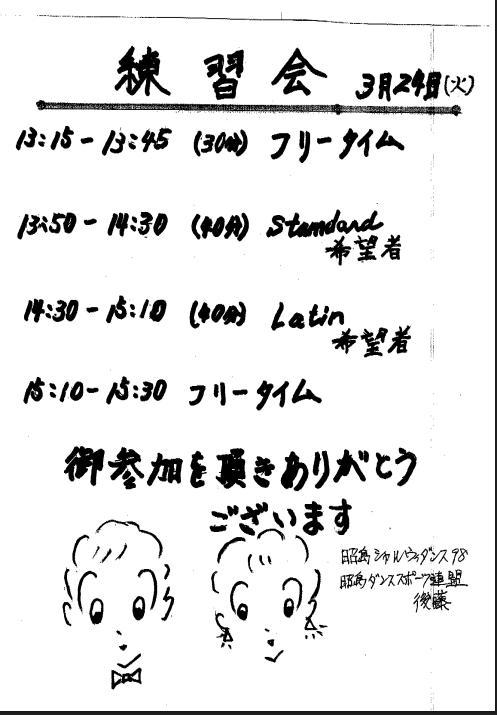 練習会 3月24日(火)
13:15-13:45 (30分) フリータイム
13:50-14:30 (40分) Standard
希望者
14:30-15:10 (40分) Latin
希望者
15:10-15:30 フリータイム
御参加を頂きありがとう
ございます
昭島シャルウィダンス98
昭島ダンススポーツ連盟
後藤